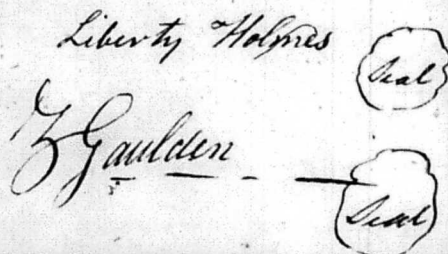 Liberty Holmes Seal
Z Gaulden
Seal